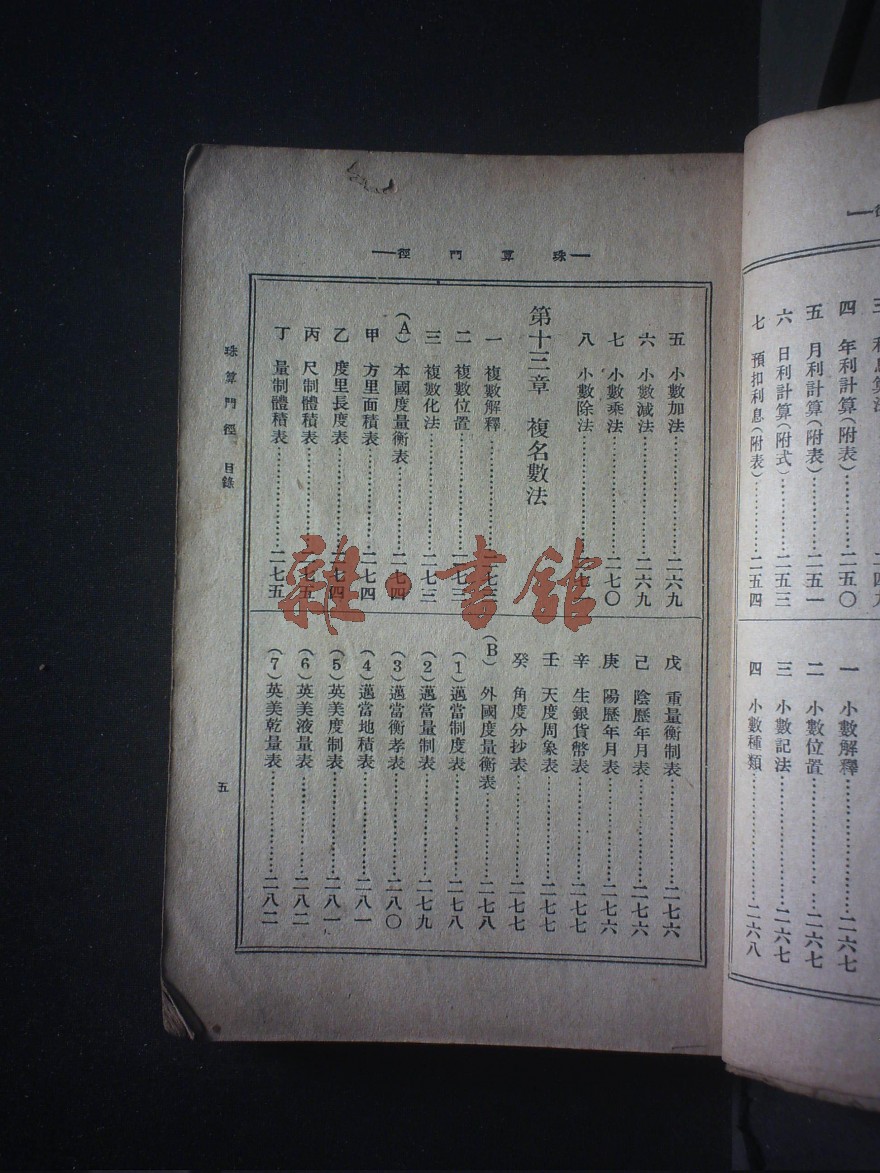 四 年利計算(附表)……二五〇
五 月利計算(附表)……二五一
六 日利計算(附式)……二五三
七 預扣利息(附表)……二五四
一 小數解釋……二六七
二 小數位置……二六七
三 小數記法……二六七
四 小數種類……二六八
珠算門徑
五 小數加法……二六九
六 小數減法……二六九
七 小數乘法……二七〇
八 小數除法……二七
第十三章 複名數法
一 複數解釋……二七三
二 複數位置……二七三
三 複數化法……二七三
(A) 本國度量衡表……二七四
甲 方里面積表……二七四
乙 度里長度表……二七四
丙 尺制體積表……二七五
丁 量制體積表……二七五
戊 重量衡制表……二七六
己 陰歷年月表……二七六
庚 陽歷年月表……二七六
辛 生銀貨幣表……二七七
壬 天度周象表……二七七
癸 角度分抄表……二七七
(B) 外國度量衡表……二七八
(1)邁當制度表……二七八
(2)邁當量制表……二七九
(3)邁當衡孝表……二八〇
(4)邁當地積表……二八一
(5)英美度制表……二八一
(6)英美液量表……二八二
(7)英美乾量表……二八二
珠算門徑 目錄
五
雜·書館